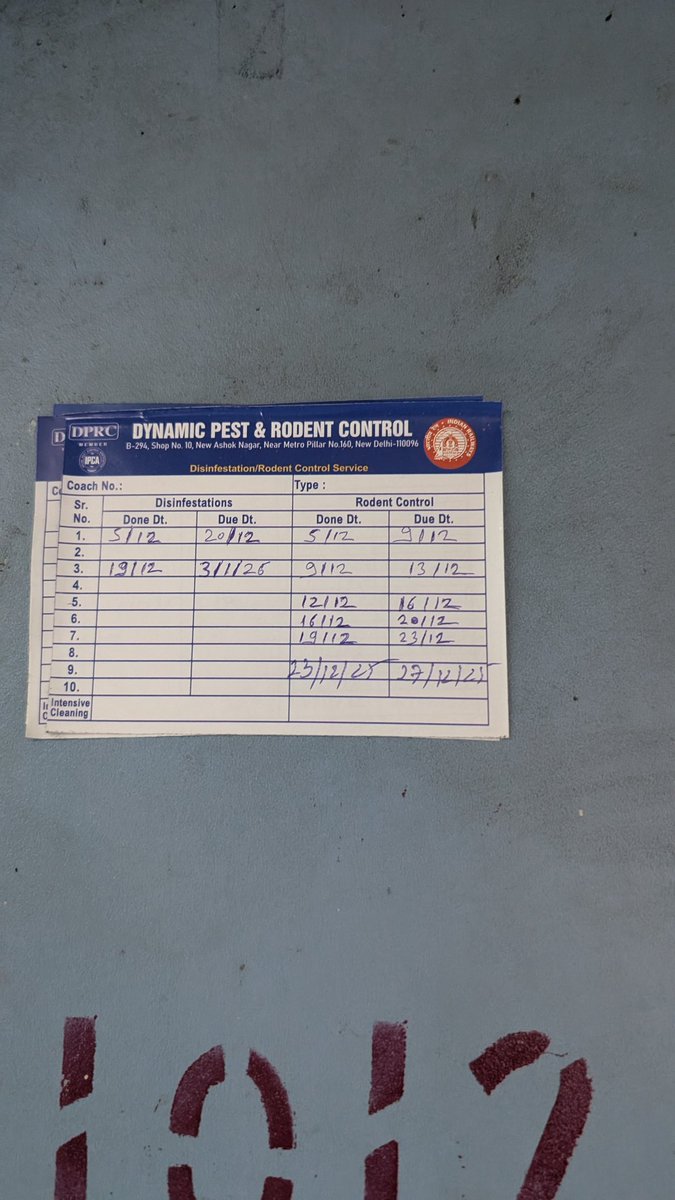 DPRC
MEMBER
IPCA
DYNAMIC PEST & RODENT CONTROL
B-294, Shop No. 10, New Ashok Nagar, Near Metro Pillar No.160, New Delhi-110096
भारतीय रेल INDIAN RAILWAYS
Disinfestation/Rodent Control Service
Coach No.: Type :
Sr. No. Disinfestations Rodent Control
Done Dt. Due Dt. Done Dt. Due Dt.
1. 5/12 20/12 5/12 9/12
2.
3. 19/12 3/1/26 9/12 13/12
4.
5. 12/12 16/12
6. 16/12 20/12
7. 19/12 23/12
8.
9. 23/12/25 27/12/25
10.
Intensive Cleaning
101